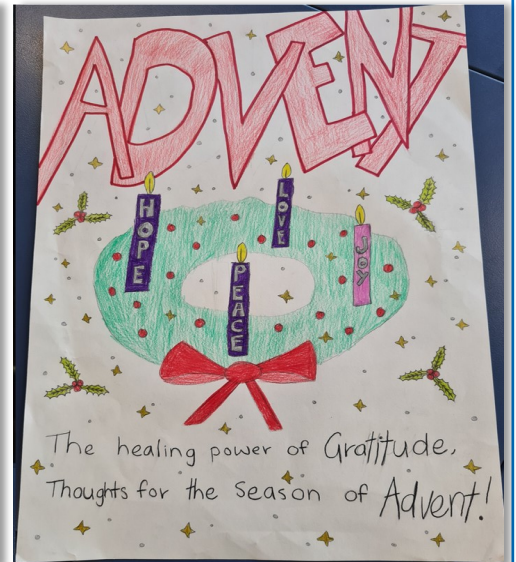 ADVENT
HOPE
LOVE
JOY
PEACE
The healing power of Gratitude,
Thoughts for the Season of Advent!